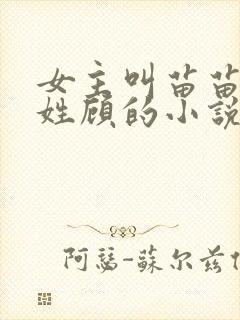 女主叫苗苗
姓顾的小説
阿瑟-蘇尔兹